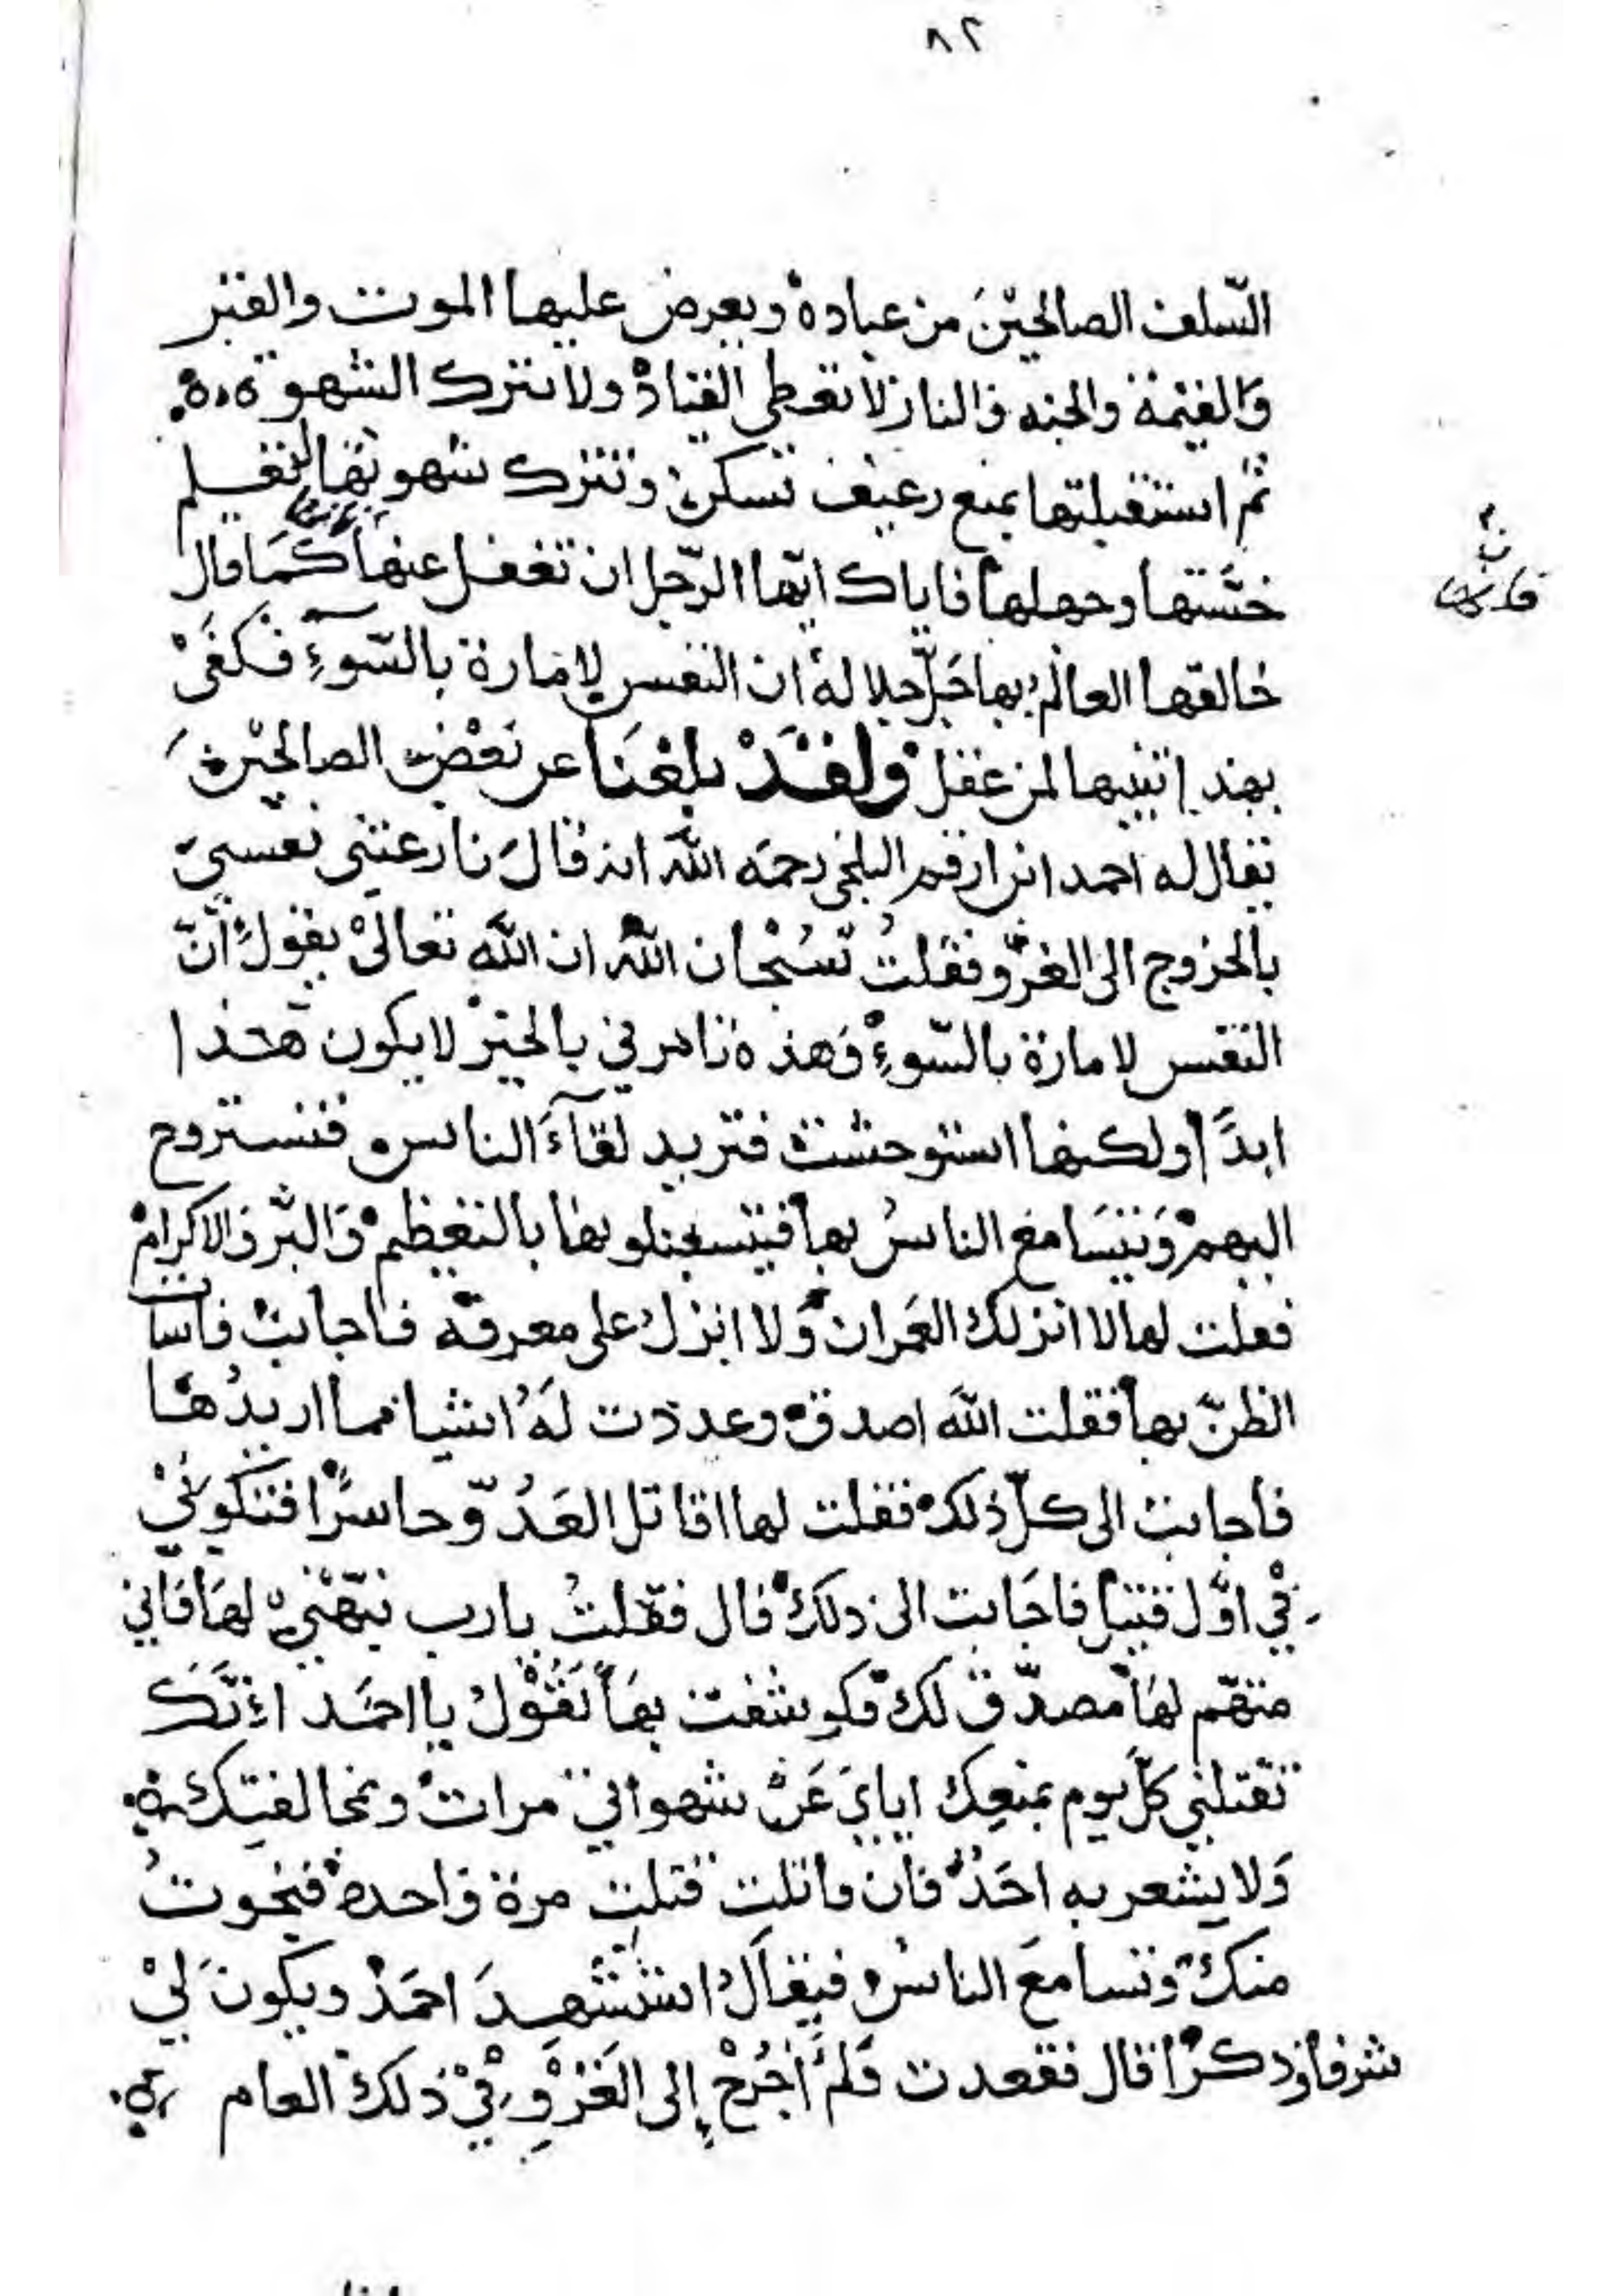 ٨٢
السّلف الصالحيْنَ من عباده ويعرض عليها الموت والقبْر
وَالقيٰمة والجنه والنار لا تعطى القيادْ ولا تترك الشهوة
ثم استقبلتها بمنع رغيف تسكنْ وتترك شهوتها لتعلم
خسّتها وجهلها فاياك ايّها الرّجل ان تغفل عنها كمَا قال
خالقها العالمُ بها جَلّ جلاله ان النفس لامارة بالسّوءِ فكفَىْ
بهذا تنبيها لمن غفل ولقَدْ بلغْنَا عن بَعْضِ الصالحيْنَ
يقال له احمد ابن ارقم البلخى رحمَه الله انه قالَ نازعتنى نفسيْ
بالخروج الى الغزو فقلتُ سُبْحان الله ان الله تعالىْ يقولُ انّ
النفس لامارة بالسّوءِ وَهذه تامرني بالخيْر لا يكون هذا
ابدًا ولكنها استوحشت فتريد لقآءَ الناس فتستروح
اليهمْ وَيتسَامع الناسُ بها فيتسقبلونها بالتعظيم وَالبّر وَالاكرامْ
فقلت لها لا انزلك العَمران وَلا انزل على معرفة فاجابتْ فاسات
الظنّ بها فقلت اللهَ اصدق وعددت لَهُا اشيا مما اريدُهَا
فاجابتْ الى كلّ ذلك فقلت لها اقاتل العَدُوّ حاسرًا فتكونيْ
فيْ اوّل قتيل فاجَابت الى ذلك قال فقلتُ يارب نبّهْنيْ لهَا فَاني
متهّم لهَا مصدّق لك فكوشفت بهَا تَقُوْلُ يا احمَد انّكَ
تقتلني كلّ يوم بمنعِك ايايَ عَنْ شهواتي مرات وبمخالفتِك
وَلا يشعر به احَدٌ فان قاتلت قتلت مرة وَاحدة فنجوتُ
منك وتسامعَ الناسُ فيقالُ استُشْهِدَ احمَدْ ويكونَ ليْ
شرفا وَذكرًا قال فقعدت فَلمْ أخْرُجْ إلى الغَزْوِ فيْ ذلك العام